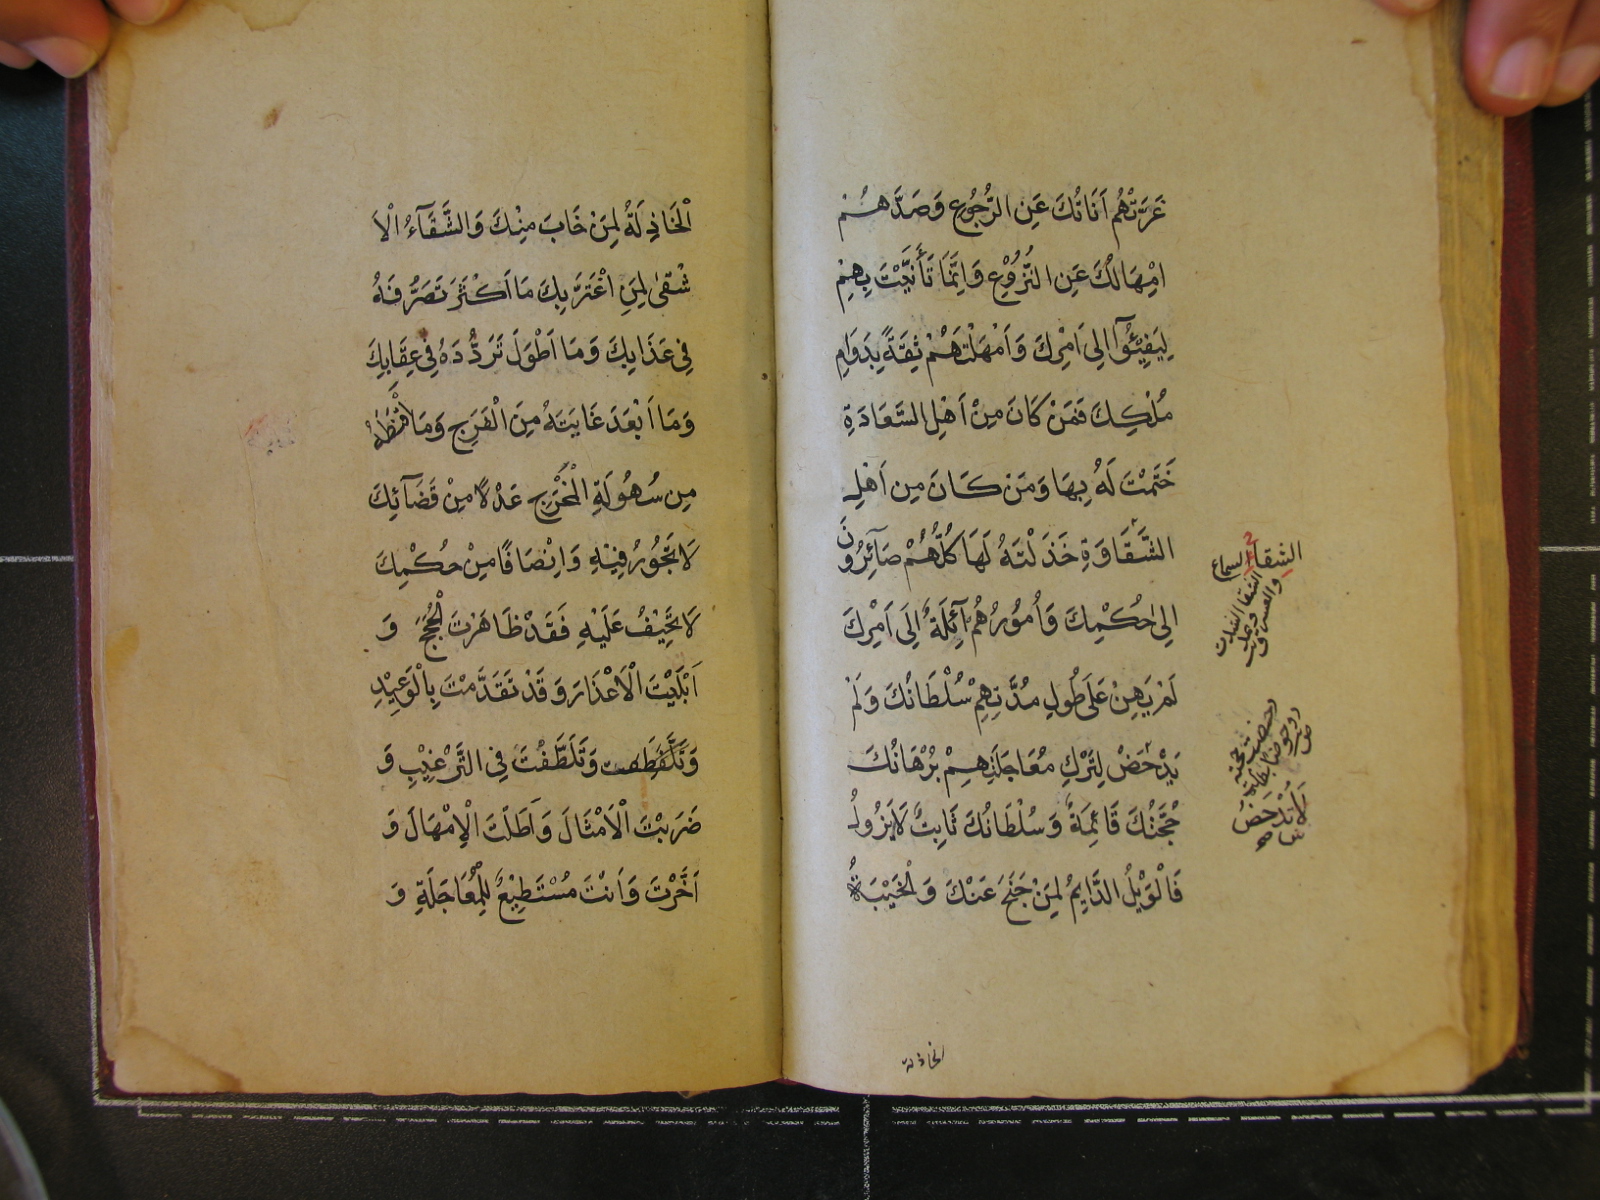 غَرَّتْهُمْ اَنَاتُكَ عَنِ الرُّجُوعِ وَصَدَّهُمْ
اِمْهَالُكَ عَنِ النُّزُوْعِ وَاِنَّمَا تَأَنَّيْتَ بِهِمْ
لِيَفِيْئُوْآ اِلى اَمْرِكَ وَاَمْهَلْتَهُمْ ثِقَةً بِدَوَامِ
مُلْكِكَ فَمَنْ كَانَ مِنْ اَهْلِ السَّعَادَةِ
خَتَمْتَ لَهُ بِهَا وَمَنْ كَانَ مِن اَهْلِ
الشَّقَاوَةِ خَذَلْتَهُ لَهَا كُلُّهُمْ صَآئِرُوْنَ
اِلىٰ حُكْمِكَ وَاُمُوْرُهُمْ آئِلَةٌ اِلَى اَمْرِكَ
لَمْ يَهِنْ عَلَى طُولِ مُدَّتِهِمْ سُلْطَانُكَ وَلَمْ
يَدْحَضْ لِتَرْكِ مُعَاجَلَتِهِمْ بُرْهَانُكَ
حُجَّتُكَ قَائِمَةٌ وَسُلْطَانُكَ ثَابِتٌ لَا يَزُولُ
فَالْوَيْلُ الدَّايِمُ لِمَنْ جَنَحَ عَنْكَ وَالْخَيْبَةُ
الشقاء
لَا تَدْحَضُ
الخاذلة
اَلْخَاذِلَةُ لِمَنْ خَابَ مِنْكَ وَالشَّقَآءُ الْاَ
شْقىٰ لِمَنِ اغْتَرَّ بِكَ مَا اَكْثَرَ تَصَرُّفَهُ
فِي عَذَابِكَ وَمَا اَطْوَلَ تَرَدُّدَهُ فِي عِقَابِكَ
وَمَا اَبْعَدَ غَايَتَهُ مِنَ الْفَرَجِ وَمَا اَقْنَطَهُ
مِن سُهُوْلَةِ الْمَخْرَجِ عَدْلًا مِنْ قَضَآئِكَ
لَا تَجُوْرُ فِيْهِ وَاِنْصَافًا مِنْ حُكْمِكَ
لَا تَحِيْفُ عَلَيْهِ فَقَدْ ظَاهَرْتَ الْحُجَجَ وَ
اَبْلَيْتَ الْاَعْذَارَ وَقَدْ تَقَدَّمْتَ بِالْوَعِيْدِ
وَتَلَطَّفْتَ فِي التَّرْغِيْبِ وَ
ضَرَبْتَ الْاَمْثَالَ وَاَطَلْتَ الْاِمْهَالَ وَ
اَخَّرْتَ وَاَنْتَ مُسْتَطِيْعٌ لِلْمُعَاجَلَةِ وَ